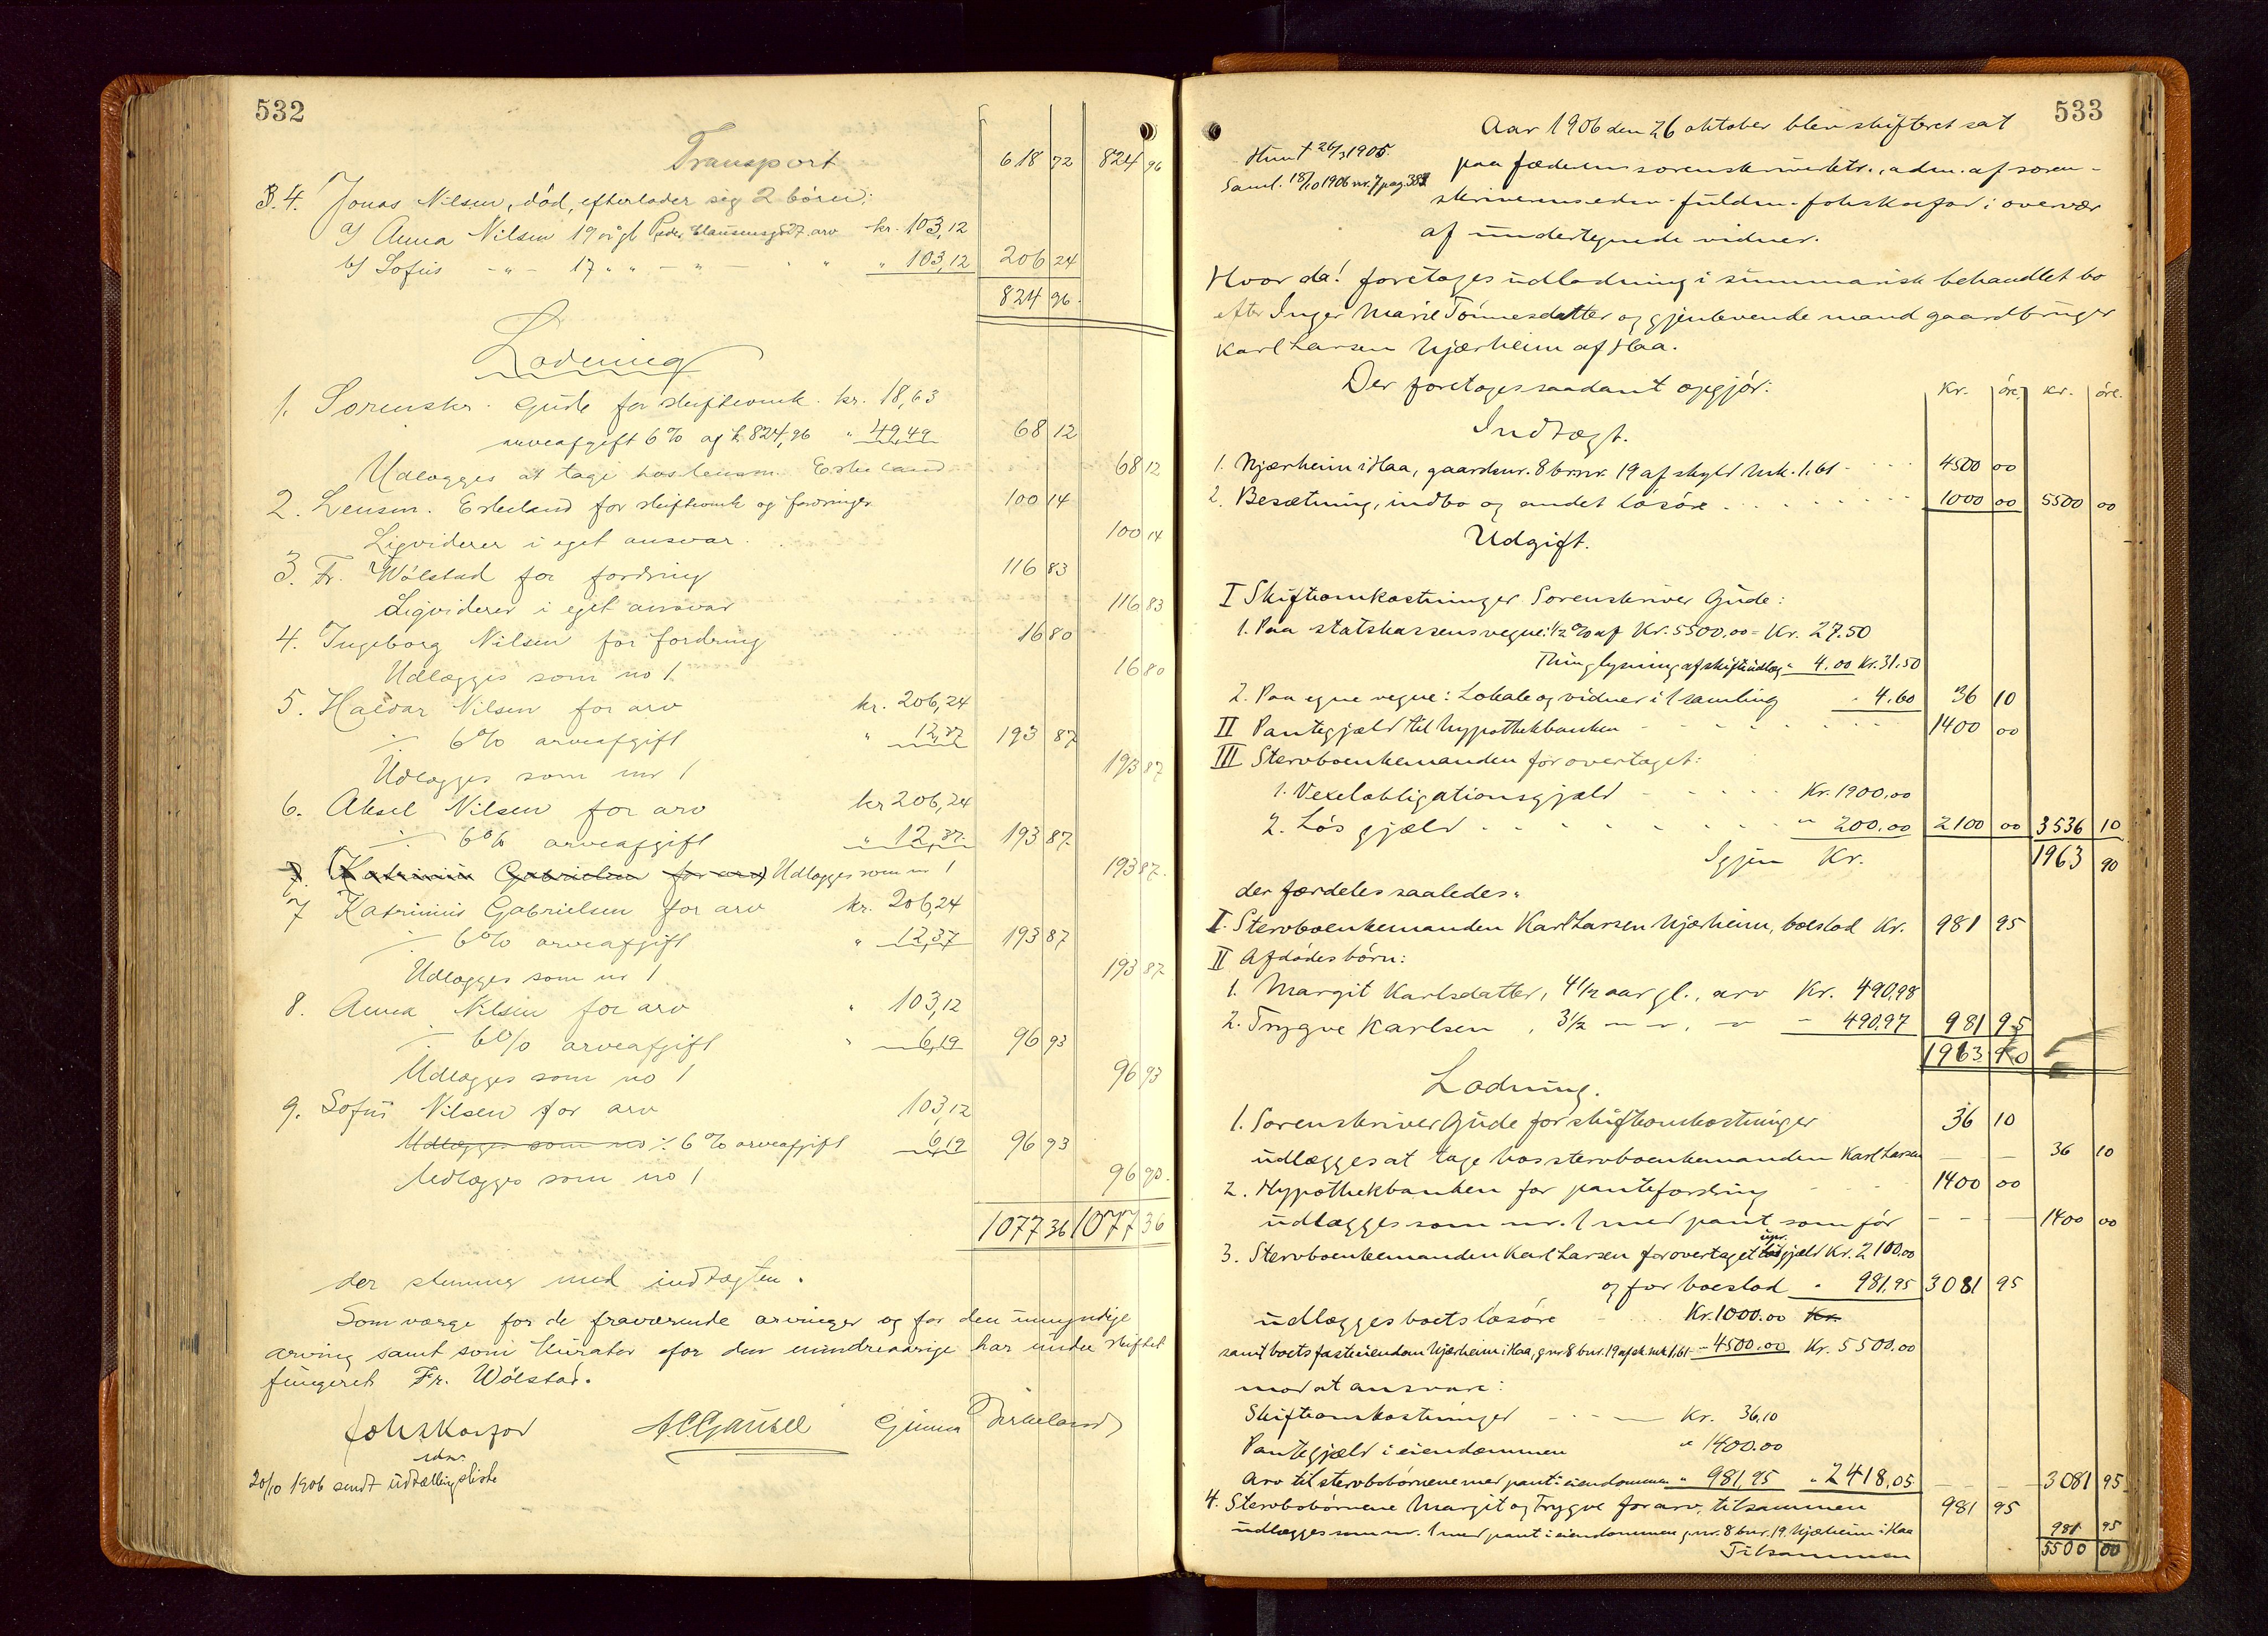 532
Transport 618 72 824 96
3.4. Jonas Nilsen, død, efterlader sig 2 børn:
a) Anna Nilsen 19 år gl. Peder Clausensgd 27. arv kr. 103,12
b) Sofus -"- 17 " " - " " " " 103,12 206 24
824 96.
Lodning
1. Sorenskr. Gude for skifteomk. kr. 18,63
arveafgift 6% af k 824,96 " 49,49 68 12
Udlægges at tage hos lensm. Eskeland 68 12
2. Lensm. Eskeland for skifteomk og fordringer 100 14
Ligviderer i eget ansvar. 100 14
3. Fr. Wölstad for fordring 116 83
Ligviderer i eget ansvar 116 83
4. Ingeborg Nilsen for fordring 16 80
Udlægges som no 1. 16 80
5. Haldar Nilsen for arv kr. 206,24
÷ 6% arveafgift " 12,37 193 87
Udlægges som nr 1 193 87
6. Aksel Nilsen for arv kr 206,24
÷ 6% arveafgift " 12,37. 193 87.
7. (Katrinius Gabrielsen for arv) Udlægges som nr 1 193 87.
7 Katrinius Gabrielsen for arv kr. 206,24
÷ 6% arveafgift " 12,37 193 87
Udlægges som nr 1 193 87
8. Anna Nilsen for arv " 103,12
÷ 6% arveafgift " 6,19 96 93
Udlægges som no 1 96 93
9. Sofus Nilsen for arv 103,12
Udlægges som no ÷ 6% arveafgift 6,19 96 93
Udlægges som no 1 96 90.
1077 36 1077 36
der stemmer med indtægten.
Som værge for de fraværende arvinger og for den umyndige
arving samt som kurator for den mindreaarige har under skiftet
fungeret Fr. Wölstad.
Joh Skorfor A C Gausel Gunnar Birkeland
edsv.
20/10 1906 sendt udtællingsliste
533
Aar 1906 den 26 oktober blev skifteret sat
Hun † 26/3 1905.
Saml. 18/10 1906 nr. 7 pag. 388
paa Jæderens sorenskriverktr., adm. af soren-
skriverens edsv. fuldm. Joh Skorfor i overvær
af undertegnede vidner.
Hvor da! foretoges udlodning i summarisk behandlet bo
efter Inger Marie Tønnesdatter og gjenlevende mand gaardbruger
Karl Larsen Njærheim af Haa.
Der foretoges saadant opgjør: Kr. øre. Kr. øre.
Indtægt.
1. Njærheim i Haa, gaardsnr. 8 brnr. 19 af skyld mk. 1.61 - 4500 00
2. Besætning, indbo og andet løsøre . . . 1000 00 5500 00
Udgift.
I Skifteomkostninger Sorenskriver Gude:
1. Paa statskassens vegne: 1/2 % af Kr. 5500.00 = Kr. 27.50
Thinglysning af skifteudlæg " 4.00 Kr. 31.50
2. Paa egne vegne: Lokale og vidner i 1 samling " 4.60 36 10
II Pantegjæld til Hypothekbanken - 1400 00
III Stervboenkemanden for overtaget:
1. Vexelobligationsgjæld - Kr. 1900.00
2. Løs gjæld - " 200.00 2100 00 3536 10
Igjen Kr. 1963 90
der fordeles saaledes:
I. Stervboenkemanden Karl Larsen Njærheim, boeslod Kr. 981 95
II Afdødes børn:
1. Margit Karlsdatter, 4 1/2 aar gl., arv Kr. 490.98
2. Trygve Karlsen, 3 1/2 - " - ", - " - 490.97 981 95
1963 90
Lodning.
1. Sorenskriver Gude for skifteomkostninger 36 10
udlægges at tage hos stervboenkemanden Karl Larsen - - 36 10
2. Hypothekbanken for pantefordring - 1400 00
udlægges som nr. 1 med pant som før - - 1400 00
upr.
3. Stervboenkemanden Karl Larsen for overtaget løs gjæld Kr. 2100.00
og for boeslod " 981.95 3081 95
udlægges boets løsøre - Kr. 1000.00 Kr.
samt boets fasteiendom Njærheim i Haa, gnr 8 bnr. 19 af sk. mk 1.61 - 4500.00 Kr. 5500.00
mod at ansvare:
Skifteomkostninger - Kr. 36.10
Pantegjæld i eiendommen " 1400.00
Arv til stervbobørnene med pant i eiendommen " 981.95 " 2418.05 - - 3081 95
4. Stervbobørnene Margit og Trygve for arv, tilsammen 981 95
udlægges som nr. 1 med pant i eiendommen gnr. 8 bnr. 19. Njærheim i Haa 981 95
Tilsammen 5500 00